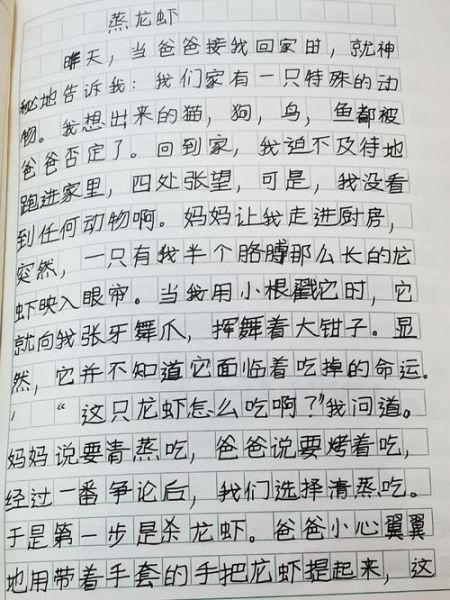 蒸龙虾
昨天，当爸爸接我回家时，就神
秘地告诉我：我们家有一只特殊的动
物。我想出来的猫，狗，鸟，鱼都被
爸爸否定了。回到家，我迫不及待地
跑进家里，四处张望，可是，我没看
到任何动物啊。妈妈让我走进厨房，
突然，一只有我半个胳膊那么长的龙
虾映入眼帘。当我用小棍戳它时，它
就向我张牙舞爪，挥舞着大钳子。显
然，它并不知道它面临着吃掉的命运。
“这只龙虾怎么吃啊？”我问道。
妈妈说要清蒸吃，爸爸说要烤着吃，
经过一番争论后，我们选择清蒸吃。
于是第一步是杀龙虾。爸爸小心翼翼
地用带着手套的手把龙虾提起来，这